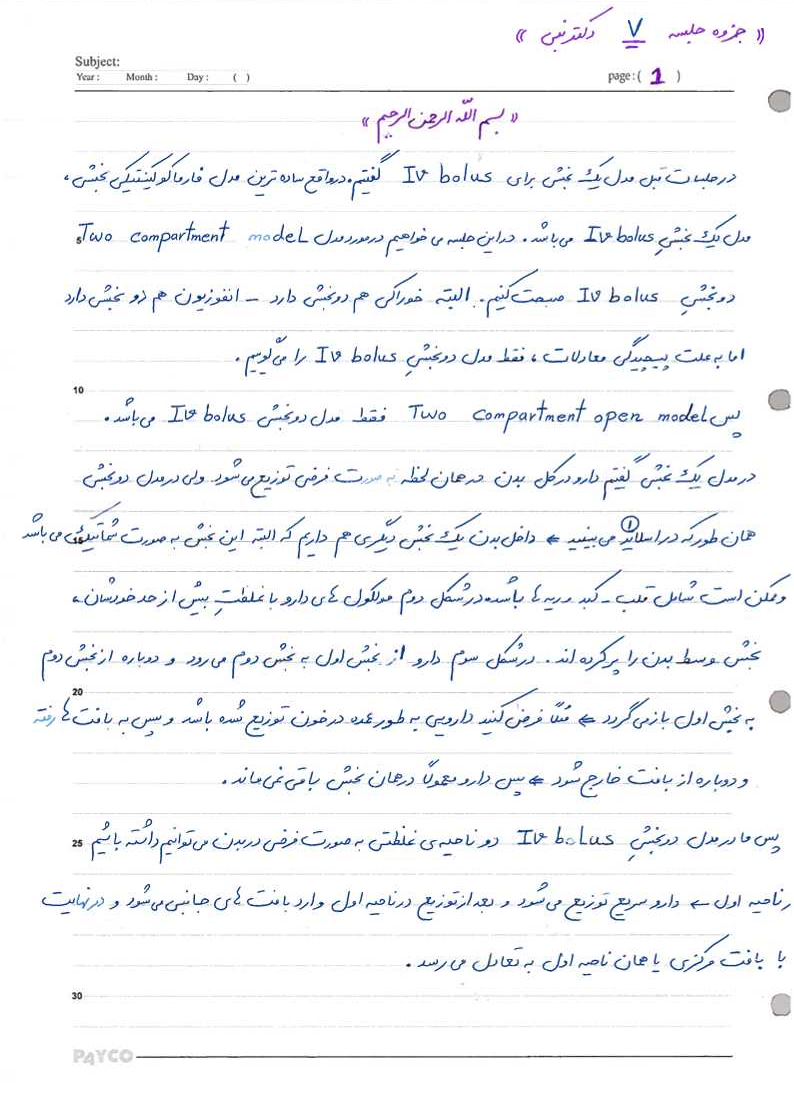 « جزوه جلسه ۷ دکتر نبی »
Subject:
Year: Month: Day: ( ) page: ( 1 )
« بسم الله الرحمن الرحیم »
در جلسات قبل مدل یک بخشی برای IV bolus گفتیم. درواقع ساده ترین مدل فارماکوکینتیکی بخشی،
مدل یک بخشیِ IV bolus می باشد. در این جلسه می خواهیم در مورد مدل Two compartment model
5
دوبخشیِ IV bolus صحبت کنیم. البته خوراکی هم دوبخشی دارد – انفوزیون هم دو بخشی دارد
اما به علت پیچیدگی معادلات، فقط مدل دوبخشیِ IV bolus را می گوییم.
10
پس Two compartment open model فقط مدل دوبخشی IV bolus می باشد.
در مدل یک بخشی گفتیم دارو در کل بدن در همان لحظه به صورت فرضی توزیع می شود ولی در مدل دوبخشی
همان طور که در اسلاید ① می بینید ← داخل بدن یک بخش دیگری هم داریم که البته این بخش به صورت شماتیک می باشد
15
و ممکن است شامل قلب - کبد و ریه ها باشد. در شکل دوم مولکول های دارو با غلظتِ بیش از حد خودشان،
بخش وسط بدن را پر کرده اند. در شکل سوم دارو از بخش اول به بخش دوم می رود و دوباره از بخش دوم
20
به بخش اول باز می گردد ← مثلاً فرض کنید دارویی به طور عمده در خون توزیع شده باشد و سپس به بافت ها رفته
و دوباره از بافت خارج شود ← پس دارو معمولاً در همان بخش باقی نمی ماند.
25
پس ما در مدل دوبخشیِ IV bolus دو ناحیه ی غلظتی به صورت فرضی در بدن می توانیم داشته باشیم
ناحیه اول ← دارو سریع توزیع می شود و بعد از توزیع در ناحیه اول وارد بافت های جانبی می شود و در نهایت
با بافت مرکزی یا همان ناحیه اول به تعادل می رسد.
30
PAYCO